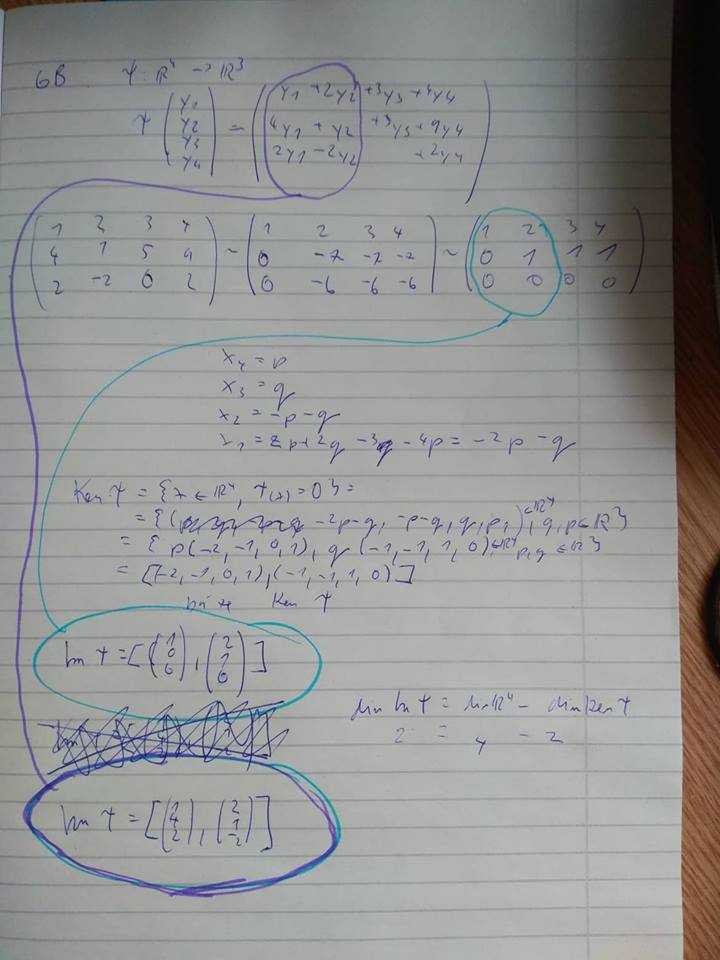 6B Ψ: ℝ⁴ -> ℝ³
Ψ (y1 y2 y3 y4) = (y1 + 2y2 + 3y3 + 4y4
4y1 + y2 + 5y3 + 9y4
2y1 - 2y2 + 2y4)
(1 2 3 4 ~ (1 2 3 4 ~ (1 2 3 4
4 1 5 9 0 -7 -7 -7 0 1 1 1
2 -2 0 2) 0 -6 -6 -6) 0 0 0 0)
x4 = p
x3 = q
x2 = -p - q
x1 = 2p + 2q - 3q - 4p = -2p - q
Ker Ψ = {x ∈ ℝ⁴, Ψ(x) = 0} =
= {(-2p-q, -p-q, q, p,) ∈ℝ⁴, q, p ∈ ℝ}
= {p(-2, -1, 0, 1), q(-1, -1, 1, 0) ∈ℝ⁴ p, q ∈ ℝ}
= [(-2, -1, 0, 1), (-1, -1, 1, 0)]
Ker Ψ
Im Ψ = [(1 0 0), (2 1 0)]
dim Im Ψ = dim ℝ⁴ - dim Ker Ψ
2 = 4 - 2
Im Ψ = [(1 4 2), (2 1 -2)]